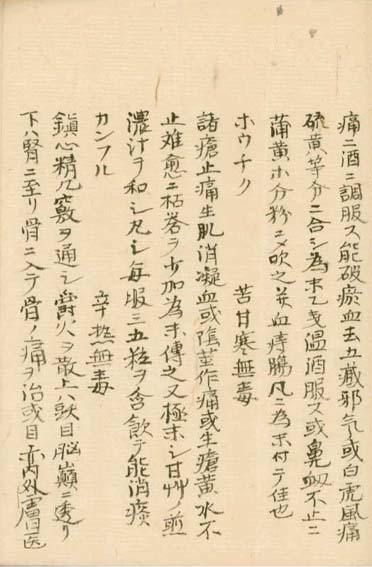 痛ニ酒ニ調服ス能破瘀血去五藏邪气或白虎風痛
硫黄等分ニ合シ為末乙戋温酒服ス或鼻衂不止ニ
蒲黄ホ分粉ニメ吹之并血痔腸凡ニ為末付テ佳也
ホウチク 苦甘寒無毒
諸瘡止痛生肌消凝血或陰莖作痛或生瘡黄水不
止难愈ニ枯礬ヲ少加為末傳之又極末シ甘艸ノ煎
濃汁ヲ和シ丸シ毎服三五粒ヲ含飲テ能消痰
カンフル 辛热無毒
鎮心精凡竅ヲ通シ欝火ヲ散上ハ頭目脳巔ニ透リ
下ハ腎ニ至リ骨ニ入テ骨ノ痛ヲ治或目赤内外膚医